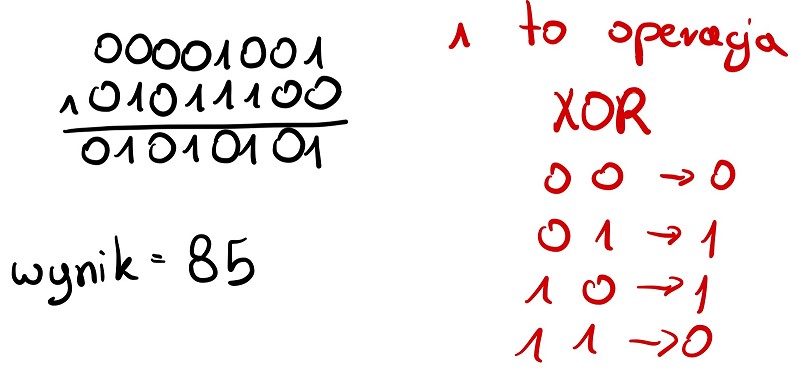 00001001
^01011100
01010101
wynik = 85
^ to operacja
XOR
0 0 → 0
0 1 → 1
1 0 → 1
1 1 → 0